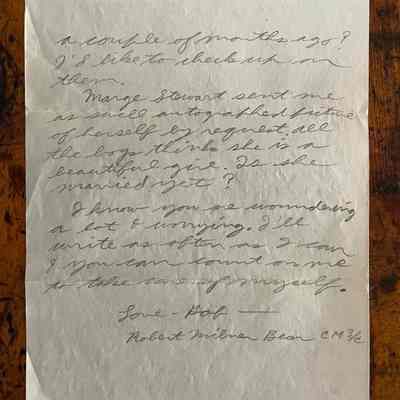 a couple of months ago?
I'd like to check up on
them.
Marge Stewart sent me
a swell autographed picture
of herself by request. All
the boys thinks she is a
beautiful girl. Is she
married yet?
I know you're wonndering
a lot & worrying. I'll
write as often as I can
& you can count on me
to take care of myself.
Love - Bob —
Robert Milner Bear CM 3/c